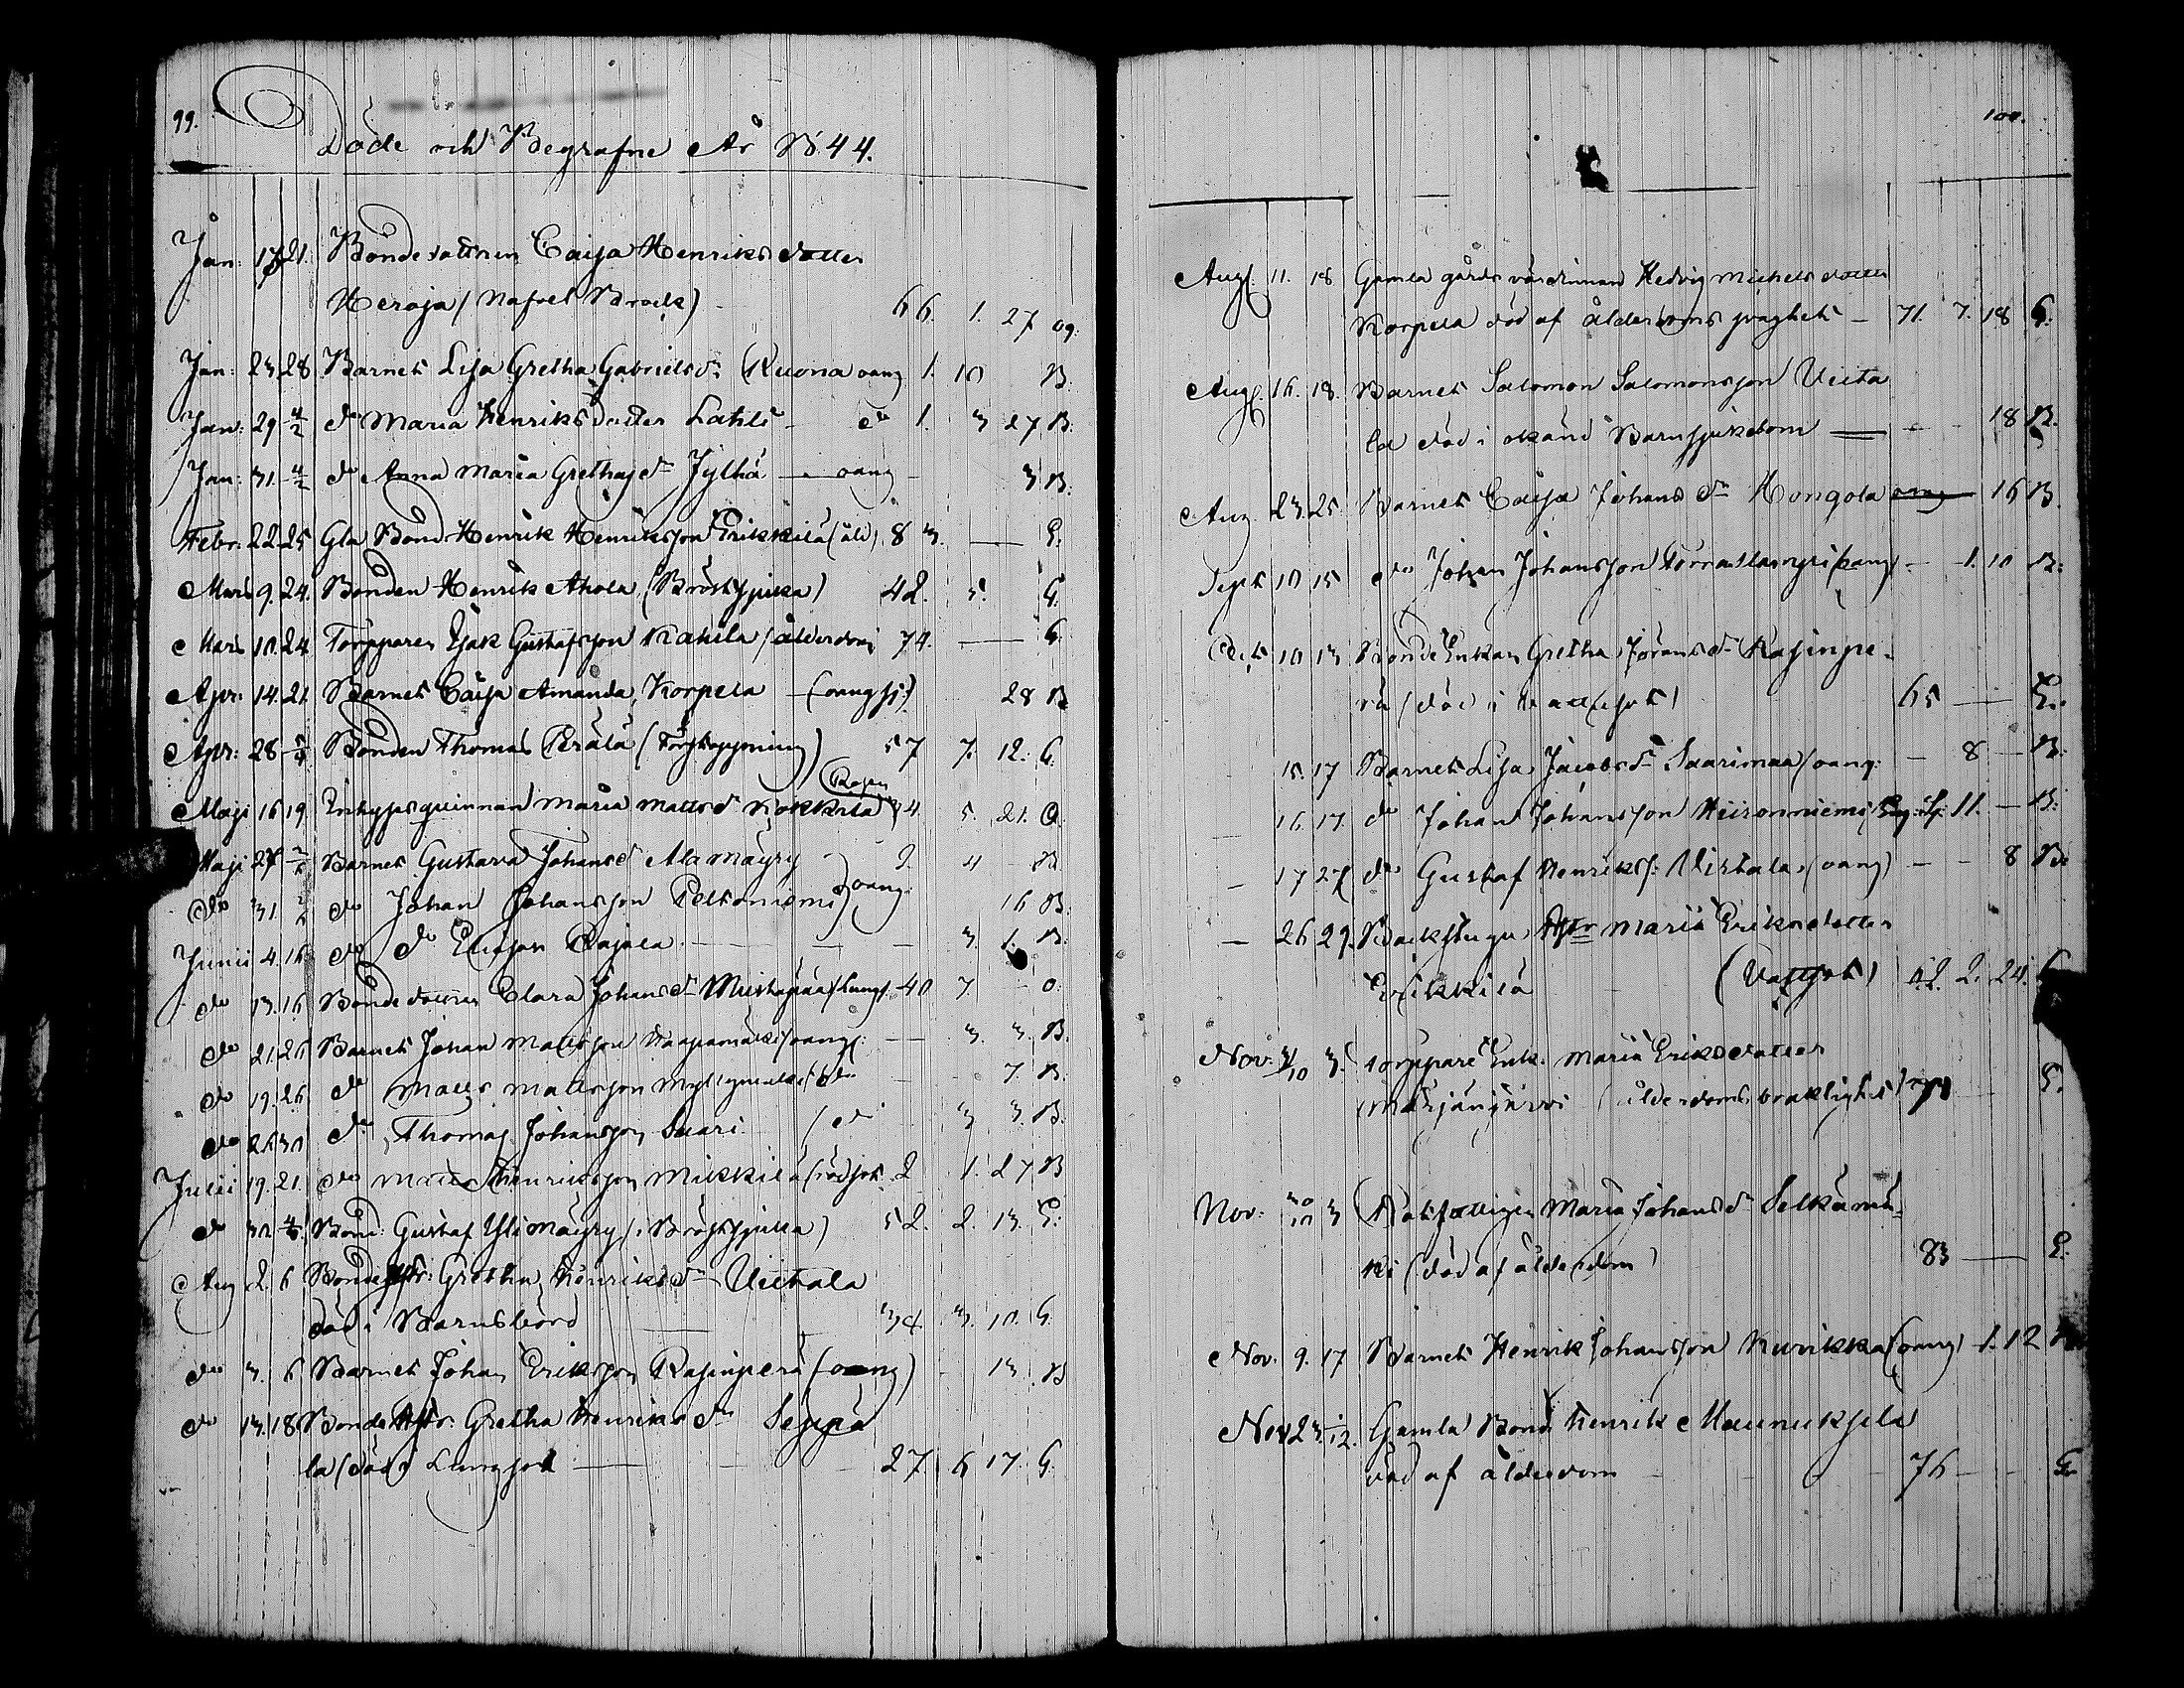 99.
Döde och Begrafne År 1844.
Jan: 17 21. Bondedottren Caija Henriksdotter
Heroja (Nafvel Brock) 66. 1. 27 og:
Jan: 23. 28 Barnet Lisa Gretha Gabrielsdr (Ruona oang 1. 10 B:
Jan: 29 4/2 do Maria Henriksdotter Lahti do 1. 3 27 B:
Jan: 31. 4/2 do Anna Maria Grethas dr Jylhä oang 3 B:
Febr: 22 25 Gla Bond: Henrik Henriksson Erikkilä (åld) 83. — E:
Mars 9. 24. Bonden Henrik Ahola (Bröstsjuka) 42. 5. G.
Mars 10. 24 Torpparen Isak Gustafsson Kahila (ålderdom) 74. — G.
Apr: 14. 21. Barnet Caija Amanda Korpela (oang sj:) 28 B
Apr: 28 5/5 Bonden Thomas Perälä 57 7. 12. G.
Maji 16 19. Inhyses qvinnan Maria Mattsdr Kokkila 5. 21. O.
Maji 27 Barnet Gustava Johansd Alamäyry 2. 4 B.
do 31. do Johan Johansson Peltoniemi oang. 16 B:
Junii 4. 16 do do Eliasson Rajala 3. 1. B.
do 13. 16 Bondedottren Clara Johansdr Mustapää (Lungs. 40 7. O:
do 21. 26 Barnet Johan Mattsson Haapamäki (oang: — 3. 3. B.
do 19. 26 do Matts Mattsson Myllymäki (do 7. B.
do 26 30 do Thomas Johansson Saari (do 3 3. B.
Julii 19. 21. do Matts Henriksson Mikkilä (rödsot. 2 1. 27 B
do 30 4/8 Bond: Gustaf Ylimäyry (Bröstsjuka) 52. 2. 13. E:
Aug 2. 6 Bonde Hstr: Gretha Henriksdr Uitala
död i Barnsbörd 34. 3. 10. G.
do 3. 6 Barnet Johan Eriksson Rasinperä (oang) 13. B
do 13. 18 Bonde Hstr. Gretha Henriks dr Seppä
la (död i Lungsot — 27 6 17 G.
100.
Aug: 11. 18 Gamla gårds värdinnan Hedvig Michelsdotter
Korpela död af ålderdoms svaghet — 71. 7. 18 G.
Aug: 16. 18. Barnet Salomon Salomonsson Uita
la död i okänd Barnsjukdom — 18 B.
Aug 23. 25 Barnet Caija Johans dr Hongola oang 16 B
Sept 10 15 do Johan Johansson (oang) 1. 10 B:
Oct: 10 13 Bonde Enkan Gretha Jöransdr Rasinpe-
rä (död i Vattusot) 65 — E.
15. 17 Barnet Lisa Jacobsdr Saarimaa (oang: — 8 — B:
16. 17. do Johan Johansson Hiironniemi 11. — B:
17 27 do Gustaf Henrikss: Uistala (oang) — 8 B.
— 26 29. Backstugu Hstr Maria Eriksdotter
Erikkilä (Vattsot) 2. 24. G
Nov: 3/10 3. Torppare Enk: Maria Eriksdotter
Marjanjärvi (ålderdoms bräklighet) E.
Nov: 30/10 3 Rotefattigen Maria Johansdr Selkämä-
ki (död af ålderdom) 83 — E.
Nov: 9. 17 Barnet Henrik Johansson Kurikka (oang) 1. 12
Nov 23. 1/12. Gamla Bond: Henrik Maunuksela
död af ålderdom — 76 — G